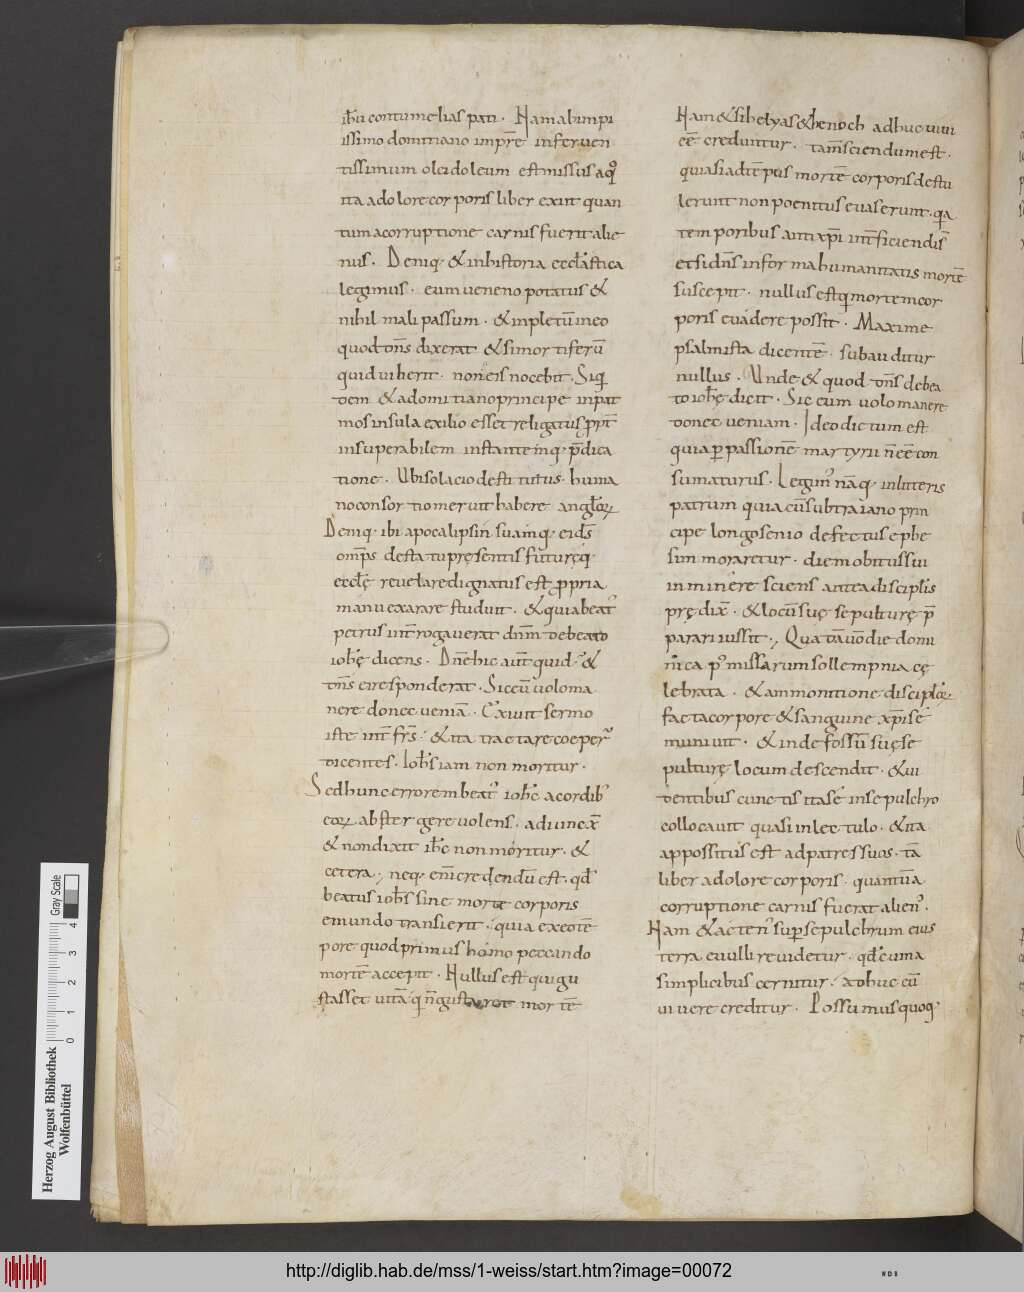 ihū contumelias pati. Nam ab impi
issimo domitiano impr̄e in feruen
tissimum olei doleum est missus a q̊
ita a dolore corporis liber exiit quan
tum a corruptione carnis fuerit alie
nus. Deniq· & in historia eccl̄astica
legimus. eum ueneno potatus &
nihil mali passum. & inpletū in eo
quod dn̄s dixerat & si mortiferū
quid uiberit. non eis nocebit. Siq
dem & a domitiano principe in pat
mos insula exilio esset religatus ppt̄
insuperabilem instantemq· p̄dica
tione. Ubi solacio destitutus. huma
no consortio meruit habere angl̄oꝝ
Deniq· ibi apocalipsin suamq· eids̄
om̄ps de statu pręsentis futuręq·
eccl̄ę reuelare dignatus est propria
manu exarare studuit. & quia beat'
petrus int̄rogauerat dn̄m de beato
iohē dicens. Dn̄e hic aut̄ quid. &
dn̄s ei responderat. Sic eū uolo ma
nere donec ueniā. Exiuit sermo
iste int̄ fr̄s. & ita tractare coeper'
dicentes. Ioh̄s iam non moritur.
Sed hunc errorem beat' ioh̄s a cordib'
eoꝝ abstergere uolens. adiunx̄
& non dixit ih̄c non moritur. &
cetera. neq· eni credendū est. qd̄
beatus ioh̄s sine morte corporis
e mundo transierit. quia ex eo tē
pore quod primus homo peccando
mortē accepit. Nullus est qui gu
stasset uitā q n̄ gustaret mortē
Nam & si helyas & henoch adhuc uiui
eē creduntur. tam̄ sciendum est.
quia si ad tēpus mortē corporis distu
lerunt non poenitus euaserunt. qa
temporibus antixp̄i int̄ficiendi s̄
et si dn̄s in forma humanitatis mortē
suscepit. nullus est q mortem cor
poris euadere possit. Maxime
psalmista dicentē. subauditur
nullus. Unde & quod dn̄s de bea
to iohē dicit. Sic eum uolo manere
donec ueniam. Ideo dictum est
quia p passionē martyrii n̄ eē con
sumaturus. Legim' nāq· in litteris
patrum quia cū sub traiano prin
cipe longo senio defectus ephe
sim moraretur. diem obitus sui
inminere sciens antea discipl̄is
prędix̄. & locū suę sepulturę p̄
parari iussit. Qua tā uō die domi
nica p' missarum sollempnia cę
lebrata. & ammonitione discipl̄oꝝ
facta corpore & sanguine xp̄i se
muniuit. & inde fossū suę se
pulturę locum descendit. & ui
dentibus cunctis ita se in sepulchro
collocauit quasi in lectulo. & ita
appossitus est ad patres suos. tā
liber a dolore corporis. quantū a
corruptione carnis fuerat alien'.
Nam & acten' sup sepulchrum eius
terra euulli re uidetur. qd̄ cum a
simplicibus cernitur. adhuc eū
uiuere creditur. Possumus quoq·
Herzog August Bibliothek
Wolfenbüttel
0 1 2 3 4
Gray Scale
http://diglib.hab.de/mss/1-weiss/start.htm?image=00072